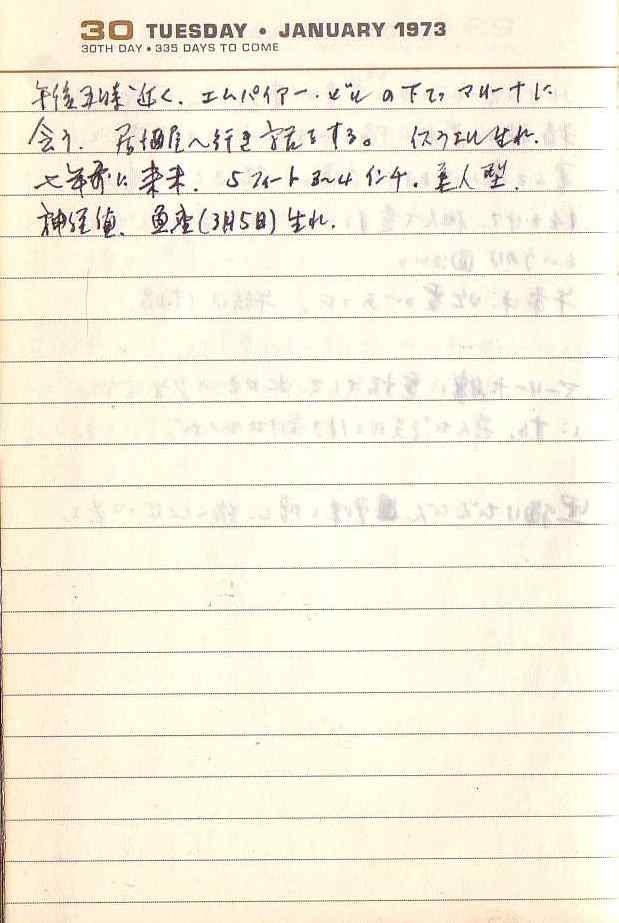 30 TUESDAY • JANUARY 1973
30TH DAY • 335 DAYS TO COME
午後五時近く、エムパイアー・ビルの下でマリーナに
会う。居酒屋へ行き話をする。イスラエル生れ、
七年前に来米、5フィート3〜4インチ、美人型、
神経質、魚座(3月5日)生れ。